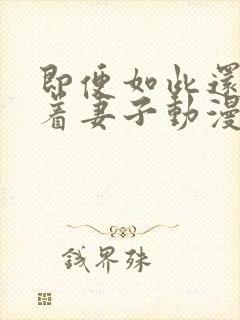 即便如此還
着妻子動漫
錢界殊